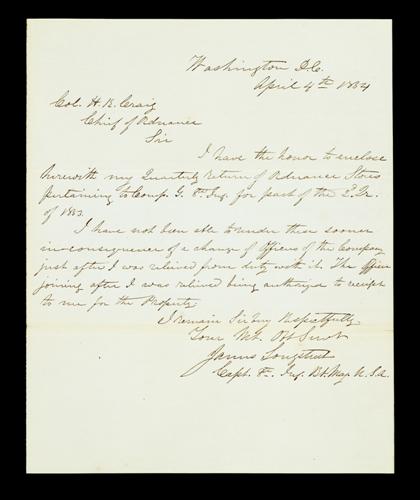 Washington D.C.
April 4th 1854
Col. H. K. Craig
Chief of Ordnance
Sir
I have the honor to enclose
herewith my Quarterly return of Ordnance Stores
pertaining to Comp. G. 8th Inf. for part of the 2d Qr.
of 1853.
I have not been able to render these sooner
in consequence of a change of Officers of the Company
just after I was relieved from duty with it. The Officer
joining after I was relieved being authorized to receipt
to me for the Property
I remain Sir very respectfully
Your Mt. Obt Servt
James Longstreet
Capt. 8th Inf. Bt. Maj. U.S.A.